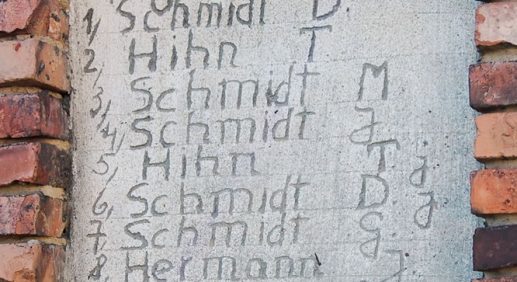 1, Schmidt D.
2, Hihn T
3, Schmidt M
4, Schmidt J
5, Hihn T. j
6, Schmidt D. j
7, Schmidt G.
8. Hermann J.